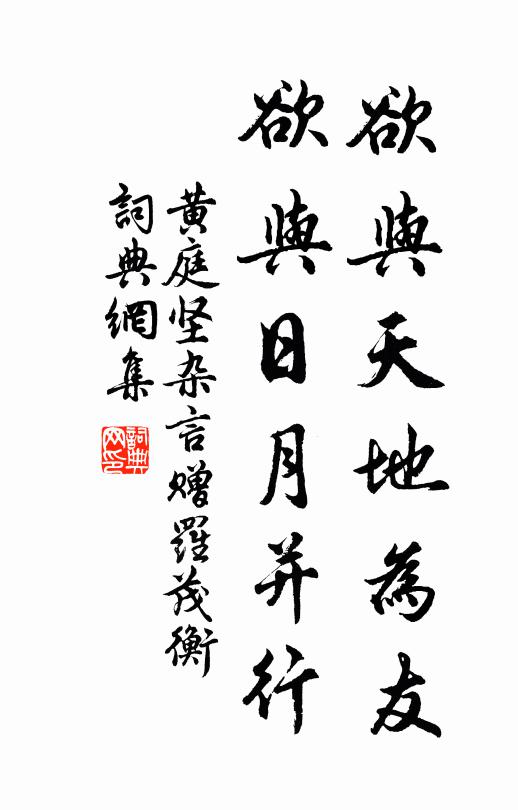 欲與天地為友
欲與日月并行
黃庭坚杂言赠羅茂衡
詞典網集
詞典网印